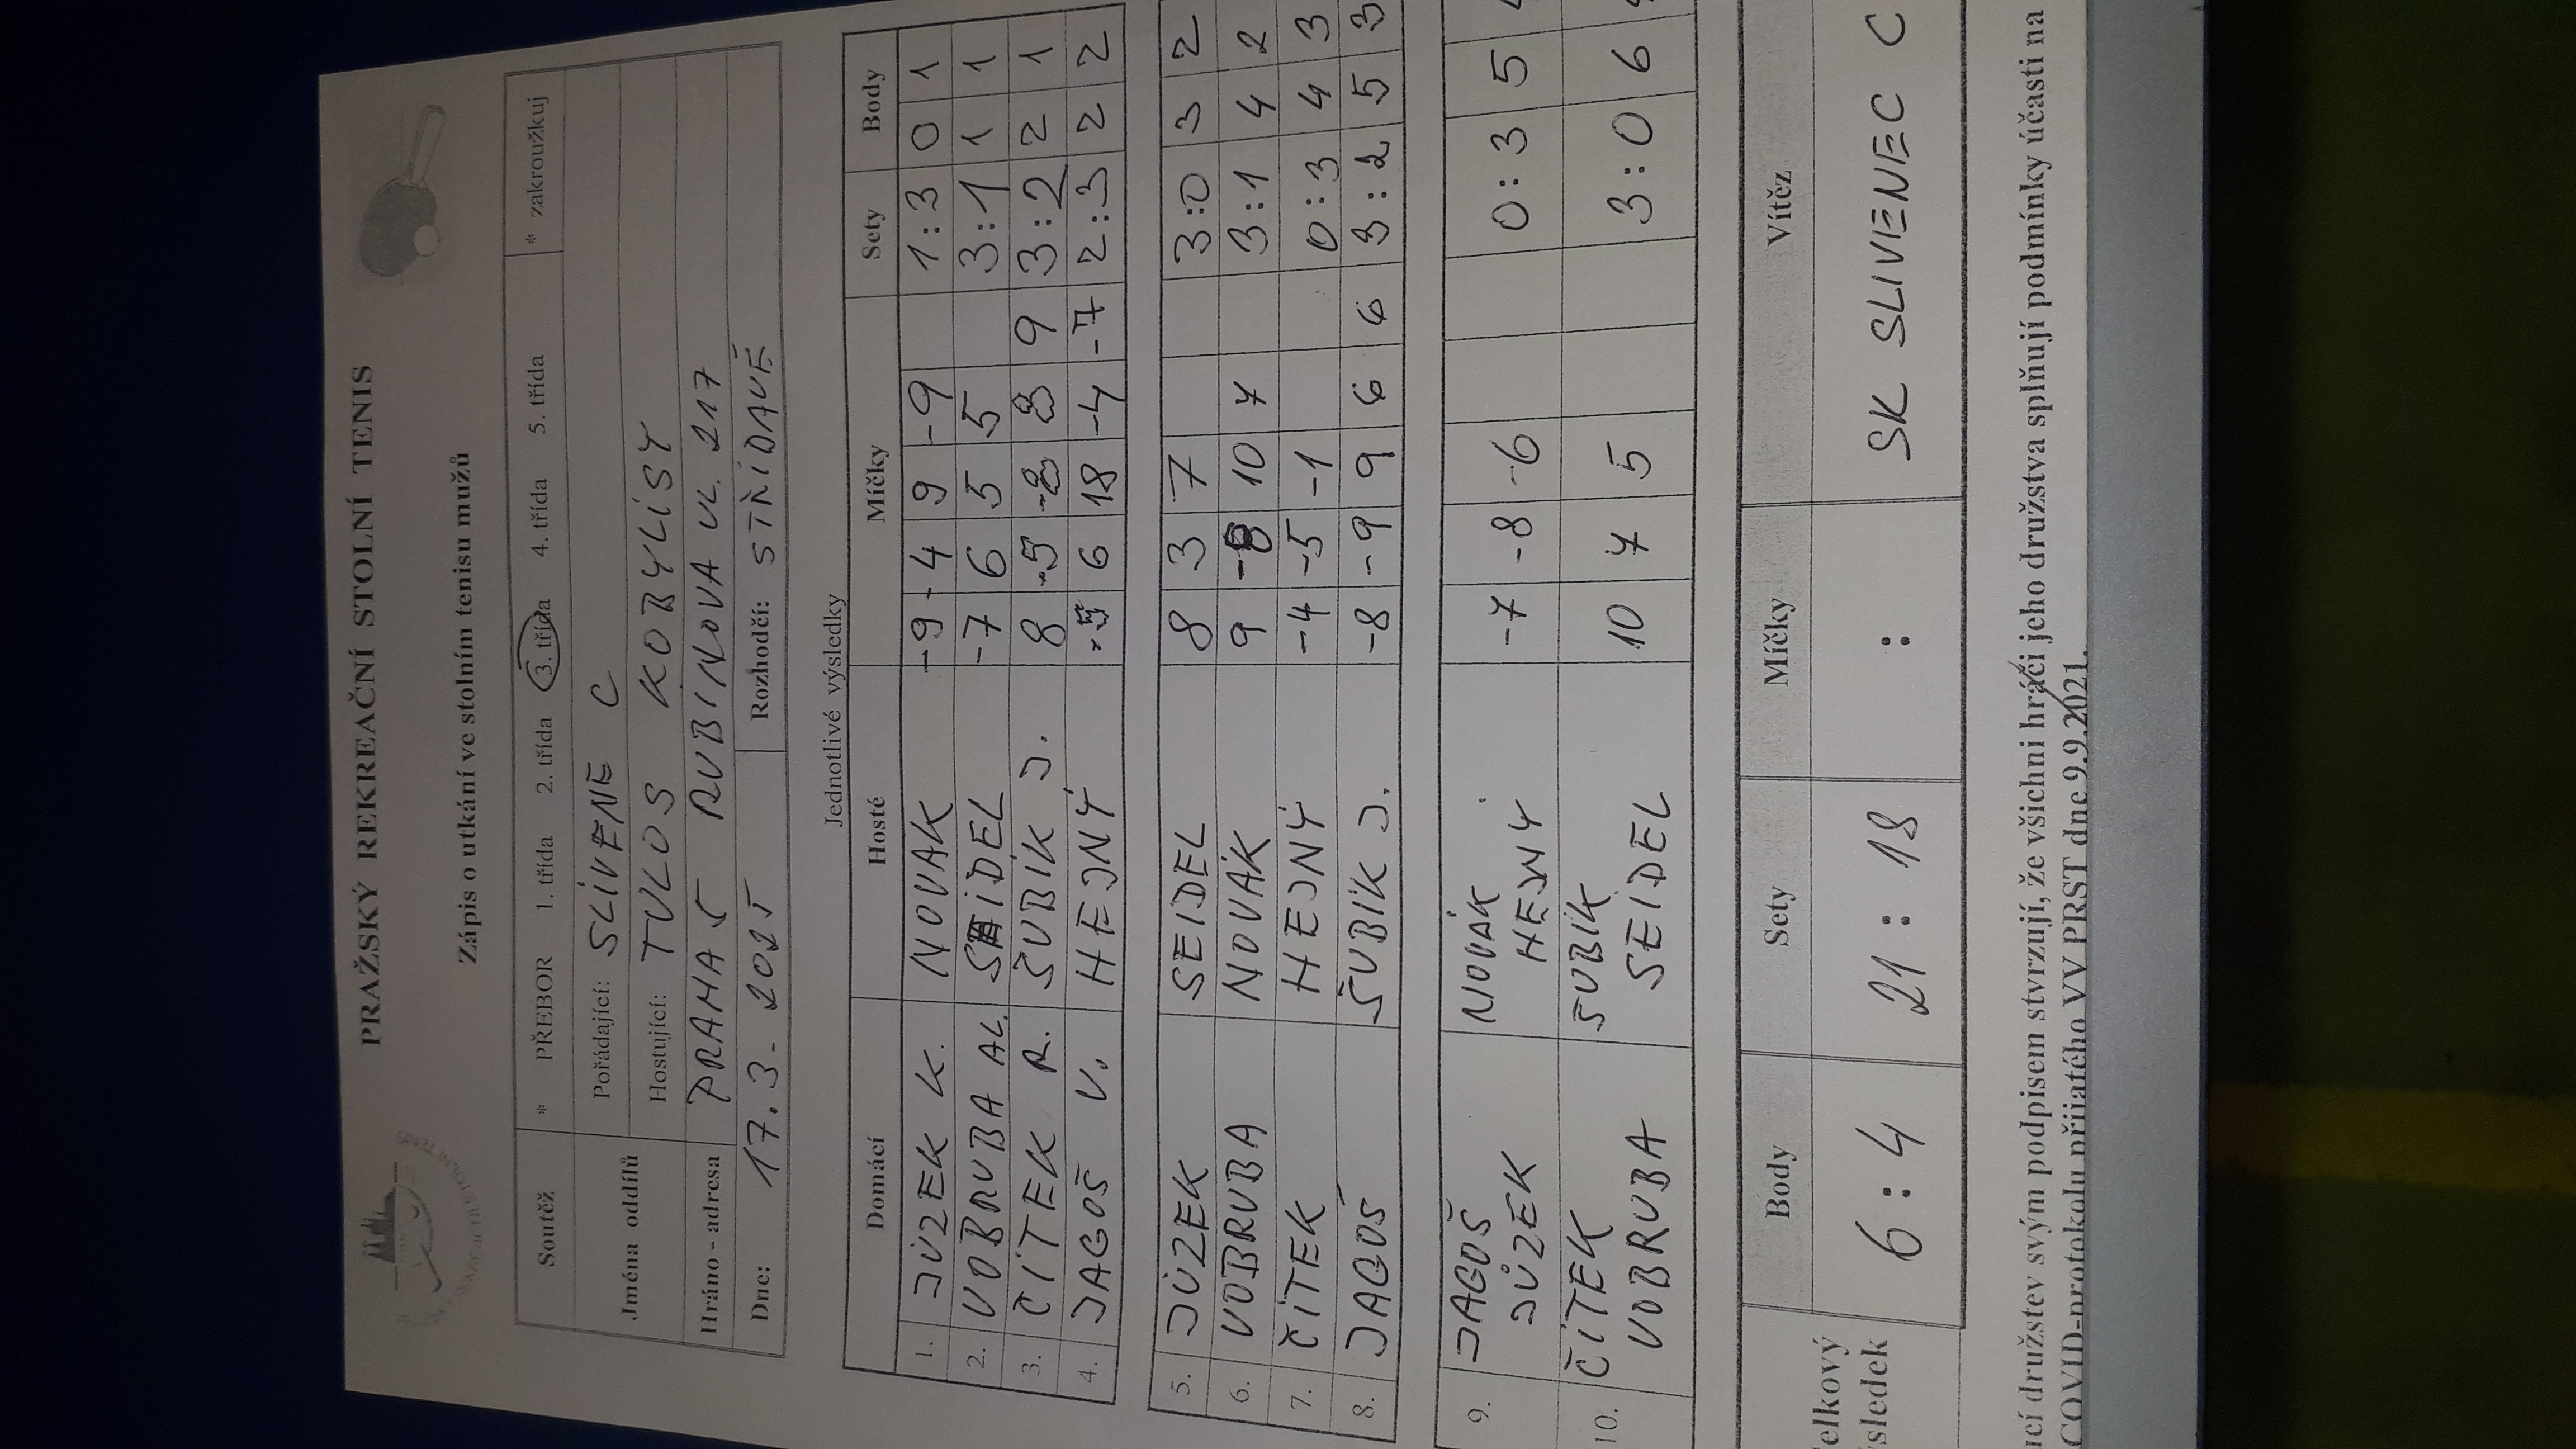 PRAŽSKÝ REKREAČNÍ STOLNÍ TENIS
Zápis o utkání ve stolním tenisu mužů
Soutěž * PŘEBOR 1. třída 2. třída 3. třída 4. třída 5. třída * zakroužkuj
Jména oddílů Pořádající: SLIVENE C
Hostující: TULOS KOBYLISY
Hráno - adresa PRAHA 5 RUBINOVA UL. 217
Dne: 17. 3. 2025 Rozhodčí: STŘÍDAVĚ
Jednotlivé výsledky
Domácí Hosté Míčky Sety Body
1. JŮZEK K. NOVÁK -9 -4 9 -9 1:3 0 1
2. VOBRUBA AL. SEIDEL -7 6 5 5 3:1 1 1
3. ČÍTEK R. ŠUBÍK J. 8 -5 -8 8 9 3:2 2 1
4. JAGOŠ V. HEJNÝ -5 6 18 -4 -7 2:3 2 2
5. JŮZEK SEIDEL 8 3 7 3:0 3 2
6. VOBRUBA NOVÁK 9 -8 10 7 3:1 4 2
7. ČÍTEK HEJNÝ -4 -5 -1 0:3 4 3
8. JAGOŠ ŠUBÍK J. -8 -9 9 6 6 3:2 5 3
9. JAGOŠ NOVÁK -7 -8 -6 0:3 5
JŮZEK HEJNÝ
10. ČÍTEK ŠUBÍK 10 7 5 3:0 6
VOBRUBA SEIDEL
Body Sety Míčky Vítěz
elkový
sledek 6 : 4 21 : 18 : SK SLIVENEC C
ucí družstev svým podpisem stvrzují, že všichni hráči jeho družstva splňují podmínky účasti na
COVID-protokolu přijatého VV PRST dne 9.9.2021.